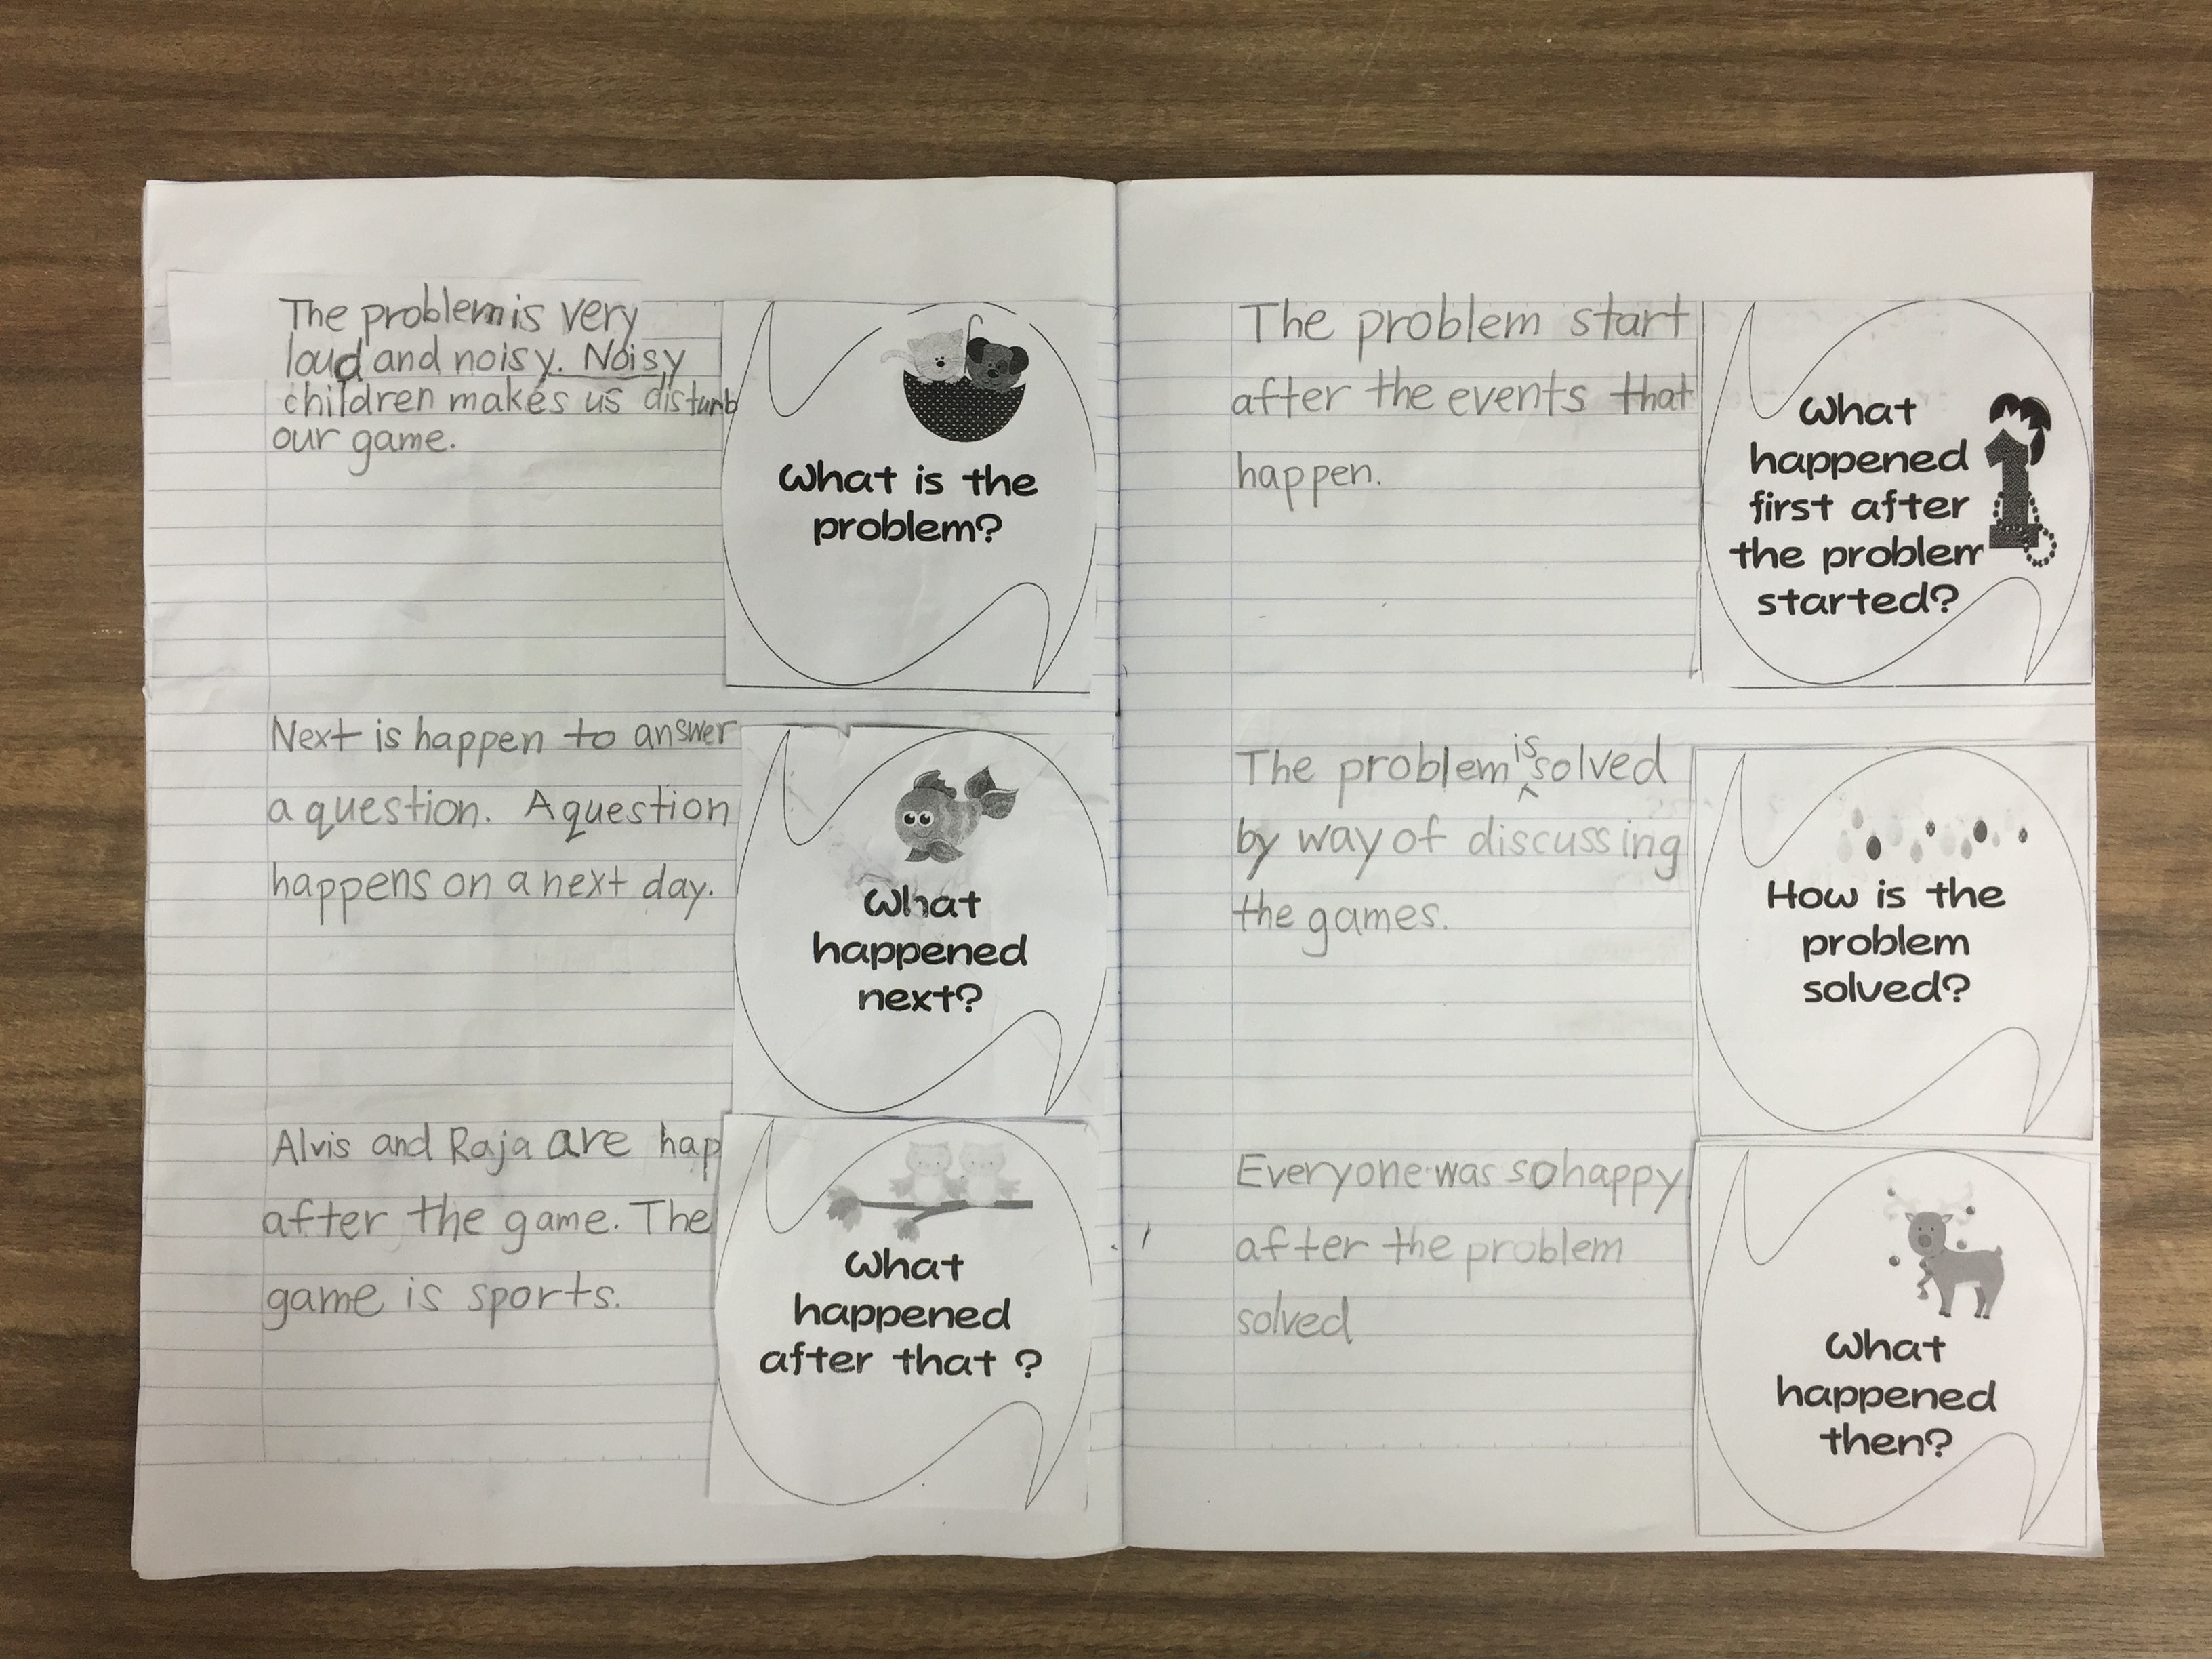 The problem is very
loud and noisy. Noisy
children makes us disturb
our game.
What is the
problem?
Next is happen to answer
a question. A question
happens on a next day.
What
happened
next?
Alvis and Raja are hap
after the game. The
game is sports.
What
happened
after that ?
The problem start
after the events that
happen.
What
happened
first after
the problem
started?
1
The problem is solved
by way of discussing
the games.
How is the
problem
solved?
Everyone was so happy
after the problem
solved
What
happened
then?